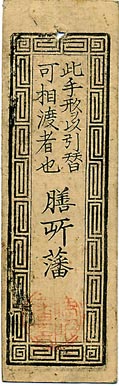 此手形ヲ以引替
可相渡者也
膳所藩